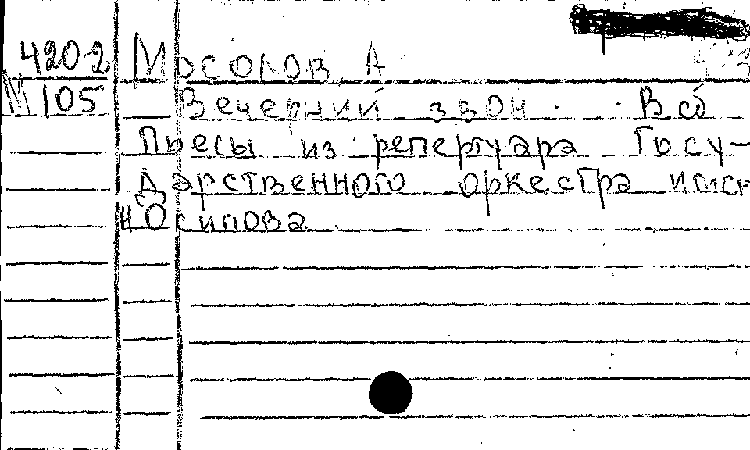 4202 Мосолов, А
М 105 Вечерний звон. В сб
Пьесы из репертуара Госу-
дарственного оркестра имен
Н Осипова